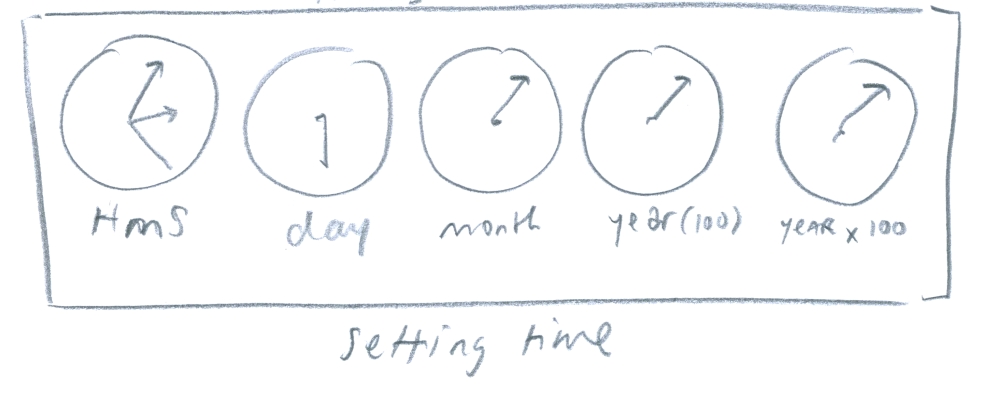 HmS
day
month
year (100)
YEAR x 100
setting time